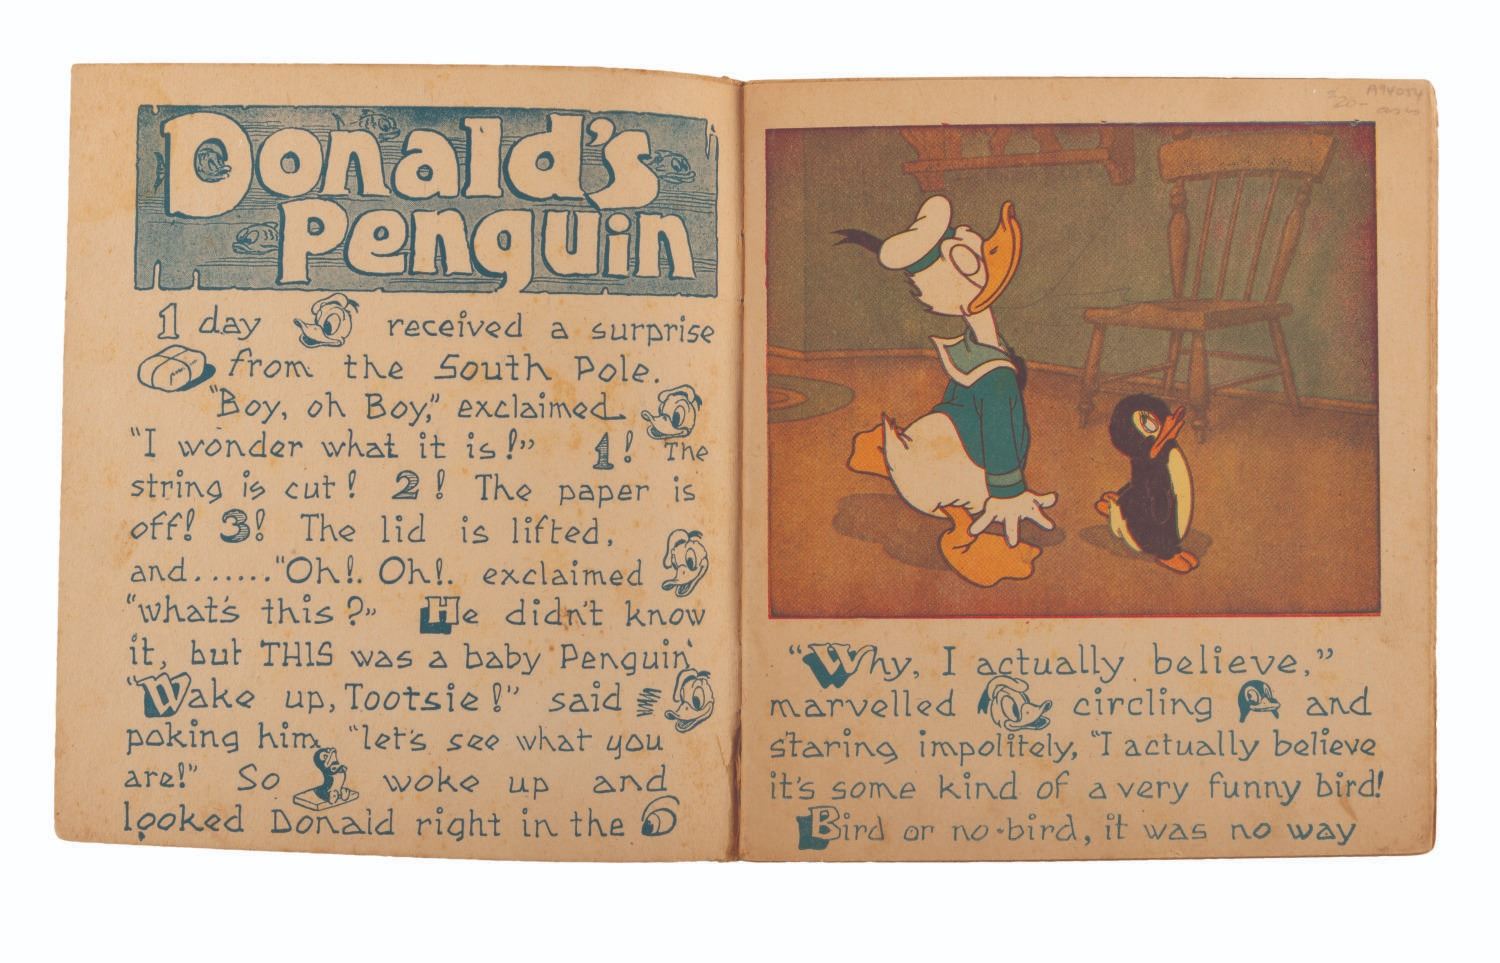 Donald's
Penguin
1 day received a surprise
from the South Pole.
"Boy, oh Boy," exclaimed
"I wonder what it is!" 1! The
string is cut! 2! The paper is
off! 3! The lid is lifted,
and......"Oh!. Oh!. exclaimed
"what's this?" He didn't know
it, but THIS was a baby Penguin
"Wake up, Tootsie!" said
poking him, "let's see what you
are!" So woke up and
looked Donald right in the
A94054
20-
"Why, I actually believe,"
marvelled circling and
staring impolitely, "I actually believe
it's some kind of a very funny bird!
Bird or no-bird, it was no way